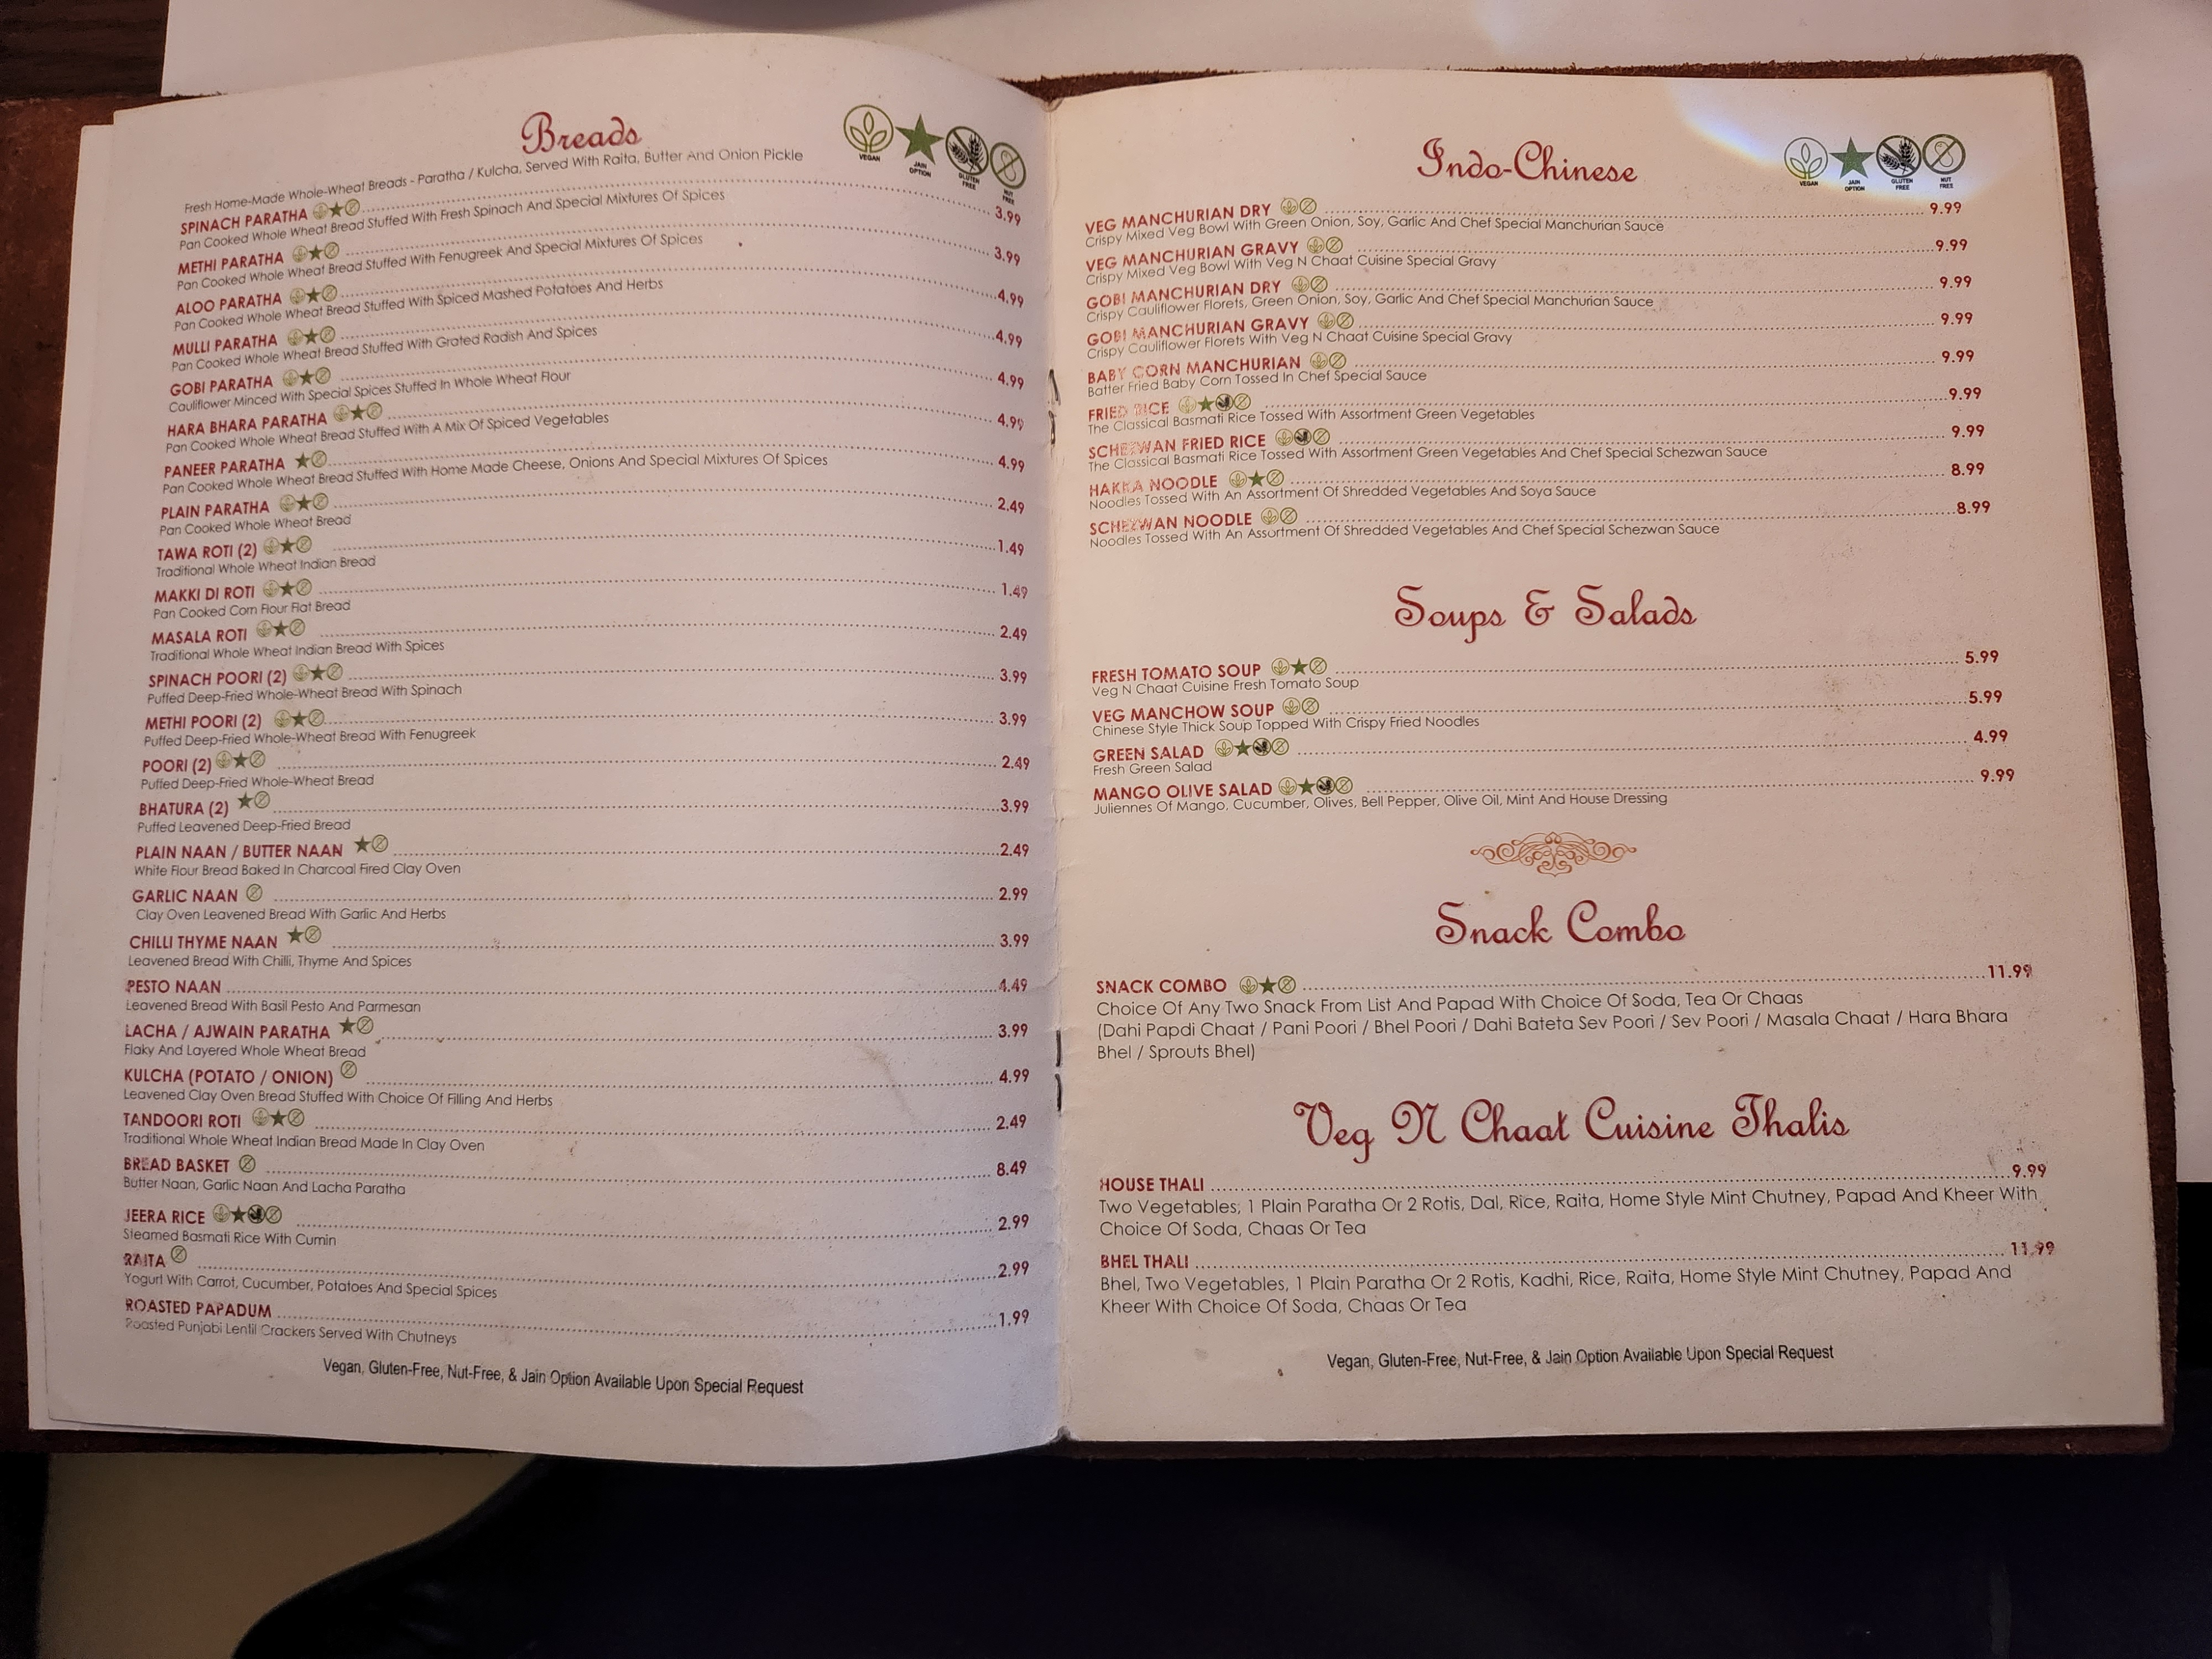 Breads
VEGAN
JAIN OPTION
GLUTEN FREE
NUT FREE
Fresh Home-Made Whole-Wheat Breads - Paratha / Kulcha, Served With Raita, Butter And Onion Pickle
SPINACH PARATHA ........ 3.99
Pan Cooked Whole Wheat Bread Stuffed With Fresh Spinach And Special Mixtures Of Spices
METHI PARATHA ........ 3.99
Pan Cooked Whole Wheat Bread Stuffed With Fenugreek And Special Mixtures Of Spices
ALOO PARATHA ........ 4.99
Pan Cooked Whole Wheat Bread Stuffed With Spiced Mashed Potatoes And Herbs
MULLI PARATHA ........ 4.99
Pan Cooked Whole Wheat Bread Stuffed With Grated Radish And Spices
GOBI PARATHA ........ 4.99
Cauliflower Minced With Special Spices Stuffed In Whole Wheat Flour
HARA BHARA PARATHA ........ 4.99
Pan Cooked Whole Wheat Bread Stuffed With A Mix Of Spiced Vegetables
PANEER PARATHA ........ 4.99
Pan Cooked Whole Wheat Bread Stuffed With Home Made Cheese, Onions And Special Mixtures Of Spices
PLAIN PARATHA ........ 2.49
Pan Cooked Whole Wheat Bread
TAWA ROTI (2) ........ 1.49
Traditional Whole Wheat Indian Bread
MAKKI DI ROTI ........ 1.49
Pan Cooked Corn Flour Flat Bread
MASALA ROTI ........ 2.49
Traditional Whole Wheat Indian Bread With Spices
SPINACH POORI (2) ........ 3.99
Puffed Deep-Fried Whole-Wheat Bread With Spinach
METHI POORI (2) ........ 3.99
Puffed Deep-Fried Whole-Wheat Bread With Fenugreek
POORI (2) ........ 2.49
Puffed Deep-Fried Whole-Wheat Bread
BHATURA (2) ........ 3.99
Puffed Leavened Deep-Fried Bread
PLAIN NAAN / BUTTER NAAN ........ 2.49
White Flour Bread Baked In Charcoal Fired Clay Oven
GARLIC NAAN ........ 2.99
Clay Oven Leavened Bread With Garlic And Herbs
CHILLI THYME NAAN ........ 3.99
Leavened Bread With Chilli, Thyme And Spices
PESTO NAAN ........ 4.49
Leavened Bread With Basil Pesto And Parmesan
LACHA / AJWAIN PARATHA ........ 3.99
Flaky And Layered Whole Wheat Bread
KULCHA (POTATO / ONION) ........ 4.99
Leavened Clay Oven Bread Stuffed With Choice Of Filling And Herbs
TANDOORI ROTI ........ 2.49
Traditional Whole Wheat Indian Bread Made In Clay Oven
BREAD BASKET ........ 8.49
Butter Naan, Garlic Naan And Lacha Paratha
JEERA RICE ........ 2.99
Steamed Basmati Rice With Cumin
RAITA ........ 2.99
Yogurt With Carrot, Cucumber, Potatoes And Special Spices
ROASTED PAPADUM ........ 1.99
Roasted Punjabi Lentil Crackers Served With Chutneys
Vegan, Gluten-Free, Nut-Free, & Jain Option Available Upon Special Request
Indo-Chinese
VEGAN
JAIN OPTION
GLUTEN FREE
NUT FREE
VEG MANCHURIAN DRY ........ 9.99
Crispy Mixed Veg Bowl With Green Onion, Soy, Garlic And Chef Special Manchurian Sauce
VEG MANCHURIAN GRAVY ........ 9.99
Crispy Mixed Veg Bowl With Veg N Chaat Cuisine Special Gravy
GOBI MANCHURIAN DRY ........ 9.99
Crispy Cauliflower Florets, Green Onion, Soy, Garlic And Chef Special Manchurian Sauce
GOBI MANCHURIAN GRAVY ........ 9.99
Crispy Cauliflower Florets With Veg N Chaat Cuisine Special Gravy
BABY CORN MANCHURIAN ........ 9.99
Batter Fried Baby Corn Tossed In Chef Special Sauce
FRIED RICE ........ 9.99
The Classical Basmati Rice Tossed With Assortment Green Vegetables
SCHEZWAN FRIED RICE ........ 9.99
The Classical Basmati Rice Tossed With Assortment Green Vegetables And Chef Special Schezwan Sauce
HAKKA NOODLE ........ 8.99
Noodles Tossed With An Assortment Of Shredded Vegetables And Soya Sauce
SCHEZWAN NOODLE ........ 8.99
Noodles Tossed With An Assortment Of Shredded Vegetables And Chef Special Schezwan Sauce
Soups & Salads
FRESH TOMATO SOUP ........ 5.99
Veg N Chaat Cuisine Fresh Tomato Soup
VEG MANCHOW SOUP ........ 5.99
Chinese Style Thick Soup Topped With Crispy Fried Noodles
GREEN SALAD ........ 4.99
Fresh Green Salad
MANGO OLIVE SALAD ........ 9.99
Juliennes Of Mango, Cucumber, Olives, Bell Pepper, Olive Oil, Mint And House Dressing
Snack Combo
SNACK COMBO ........ 11.99
Choice Of Any Two Snack From List And Papad With Choice Of Soda, Tea Or Chaas
(Dahi Papdi Chaat / Pani Poori / Bhel Poori / Dahi Bateta Sev Poori / Sev Poori / Masala Chaat / Hara Bhara
Bhel / Sprouts Bhel)
Veg N Chaat Cuisine Thalis
HOUSE THALI ........ 9.99
Two Vegetables, 1 Plain Paratha Or 2 Rotis, Dal, Rice, Raita, Home Style Mint Chutney, Papad And Kheer With
Choice Of Soda, Chaas Or Tea
BHEL THALI ........ 11.99
Bhel, Two Vegetables, 1 Plain Paratha Or 2 Rotis, Kadhi, Rice, Raita, Home Style Mint Chutney, Papad And
Kheer With Choice Of Soda, Chaas Or Tea
Vegan, Gluten-Free, Nut-Free, & Jain Option Available Upon Special Request